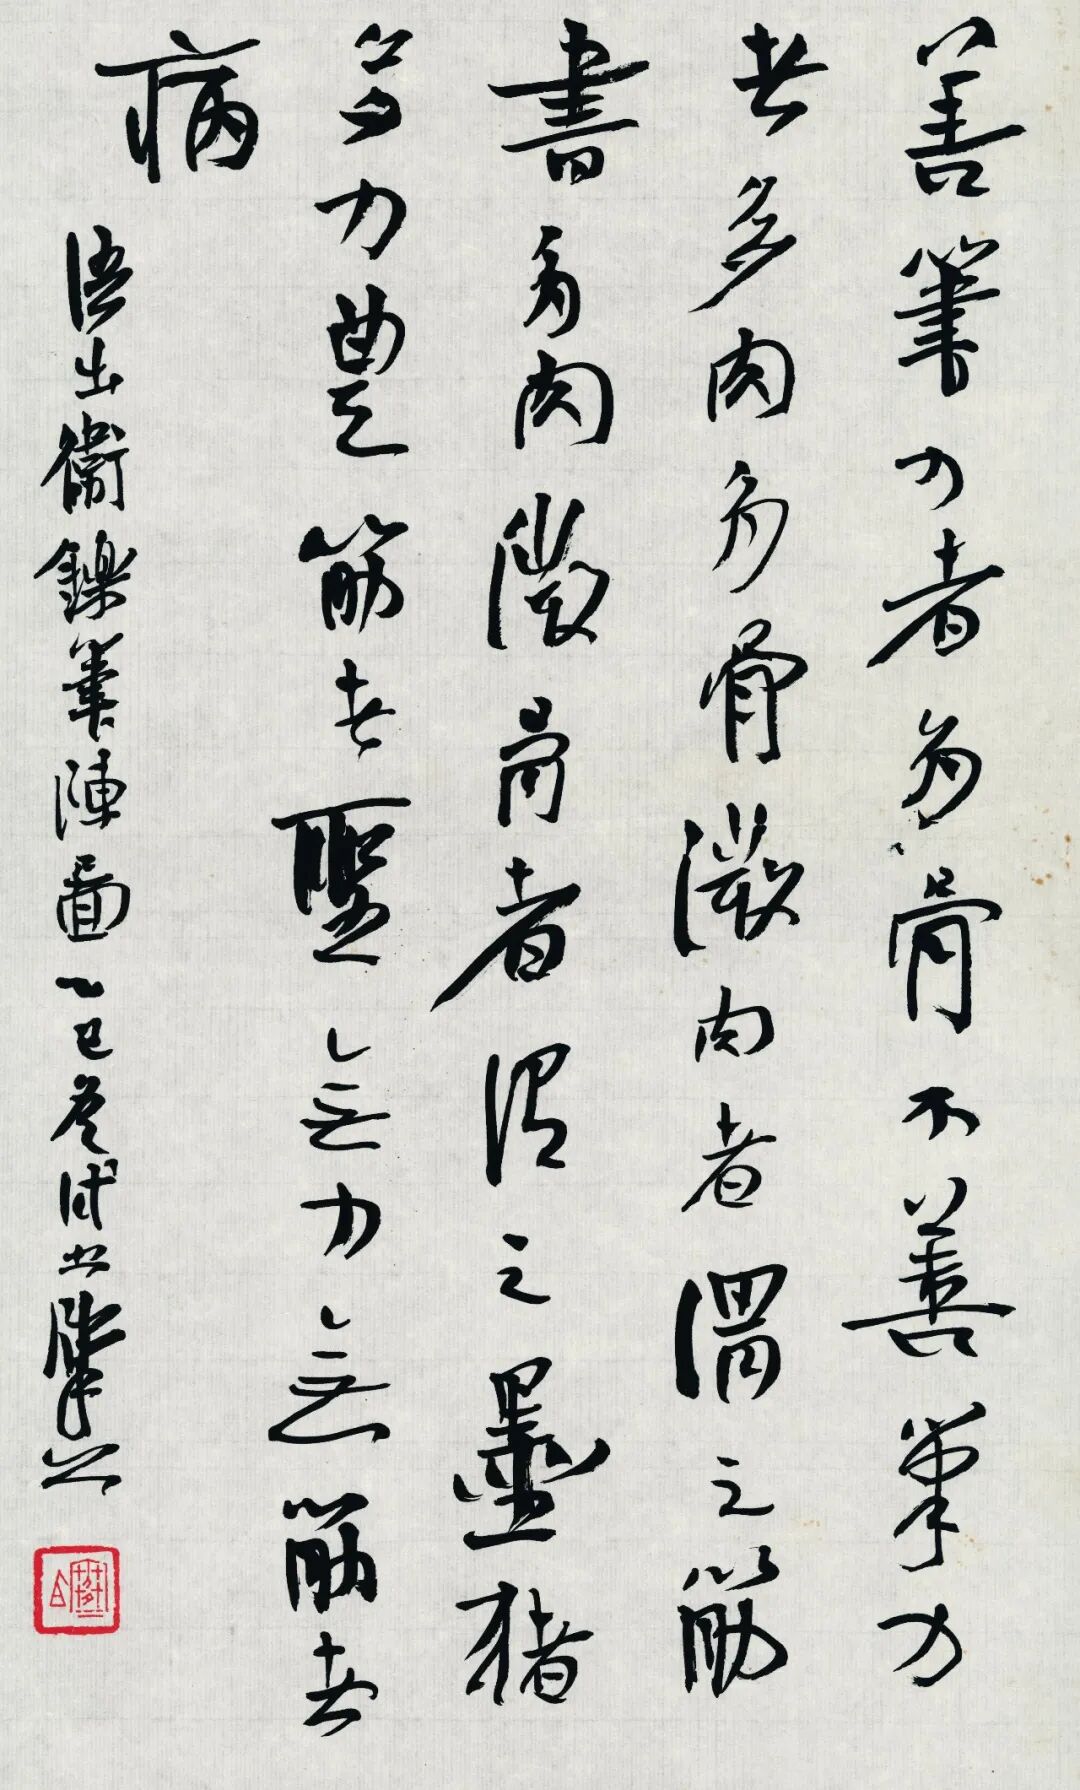 善筆力者多骨不善筆力
者多肉多骨微肉者謂之筋
書多肉微骨者謂之墨猪
多力豊筋者聖無力無筋者
病
語出衛鑠筆陣圖乙巳